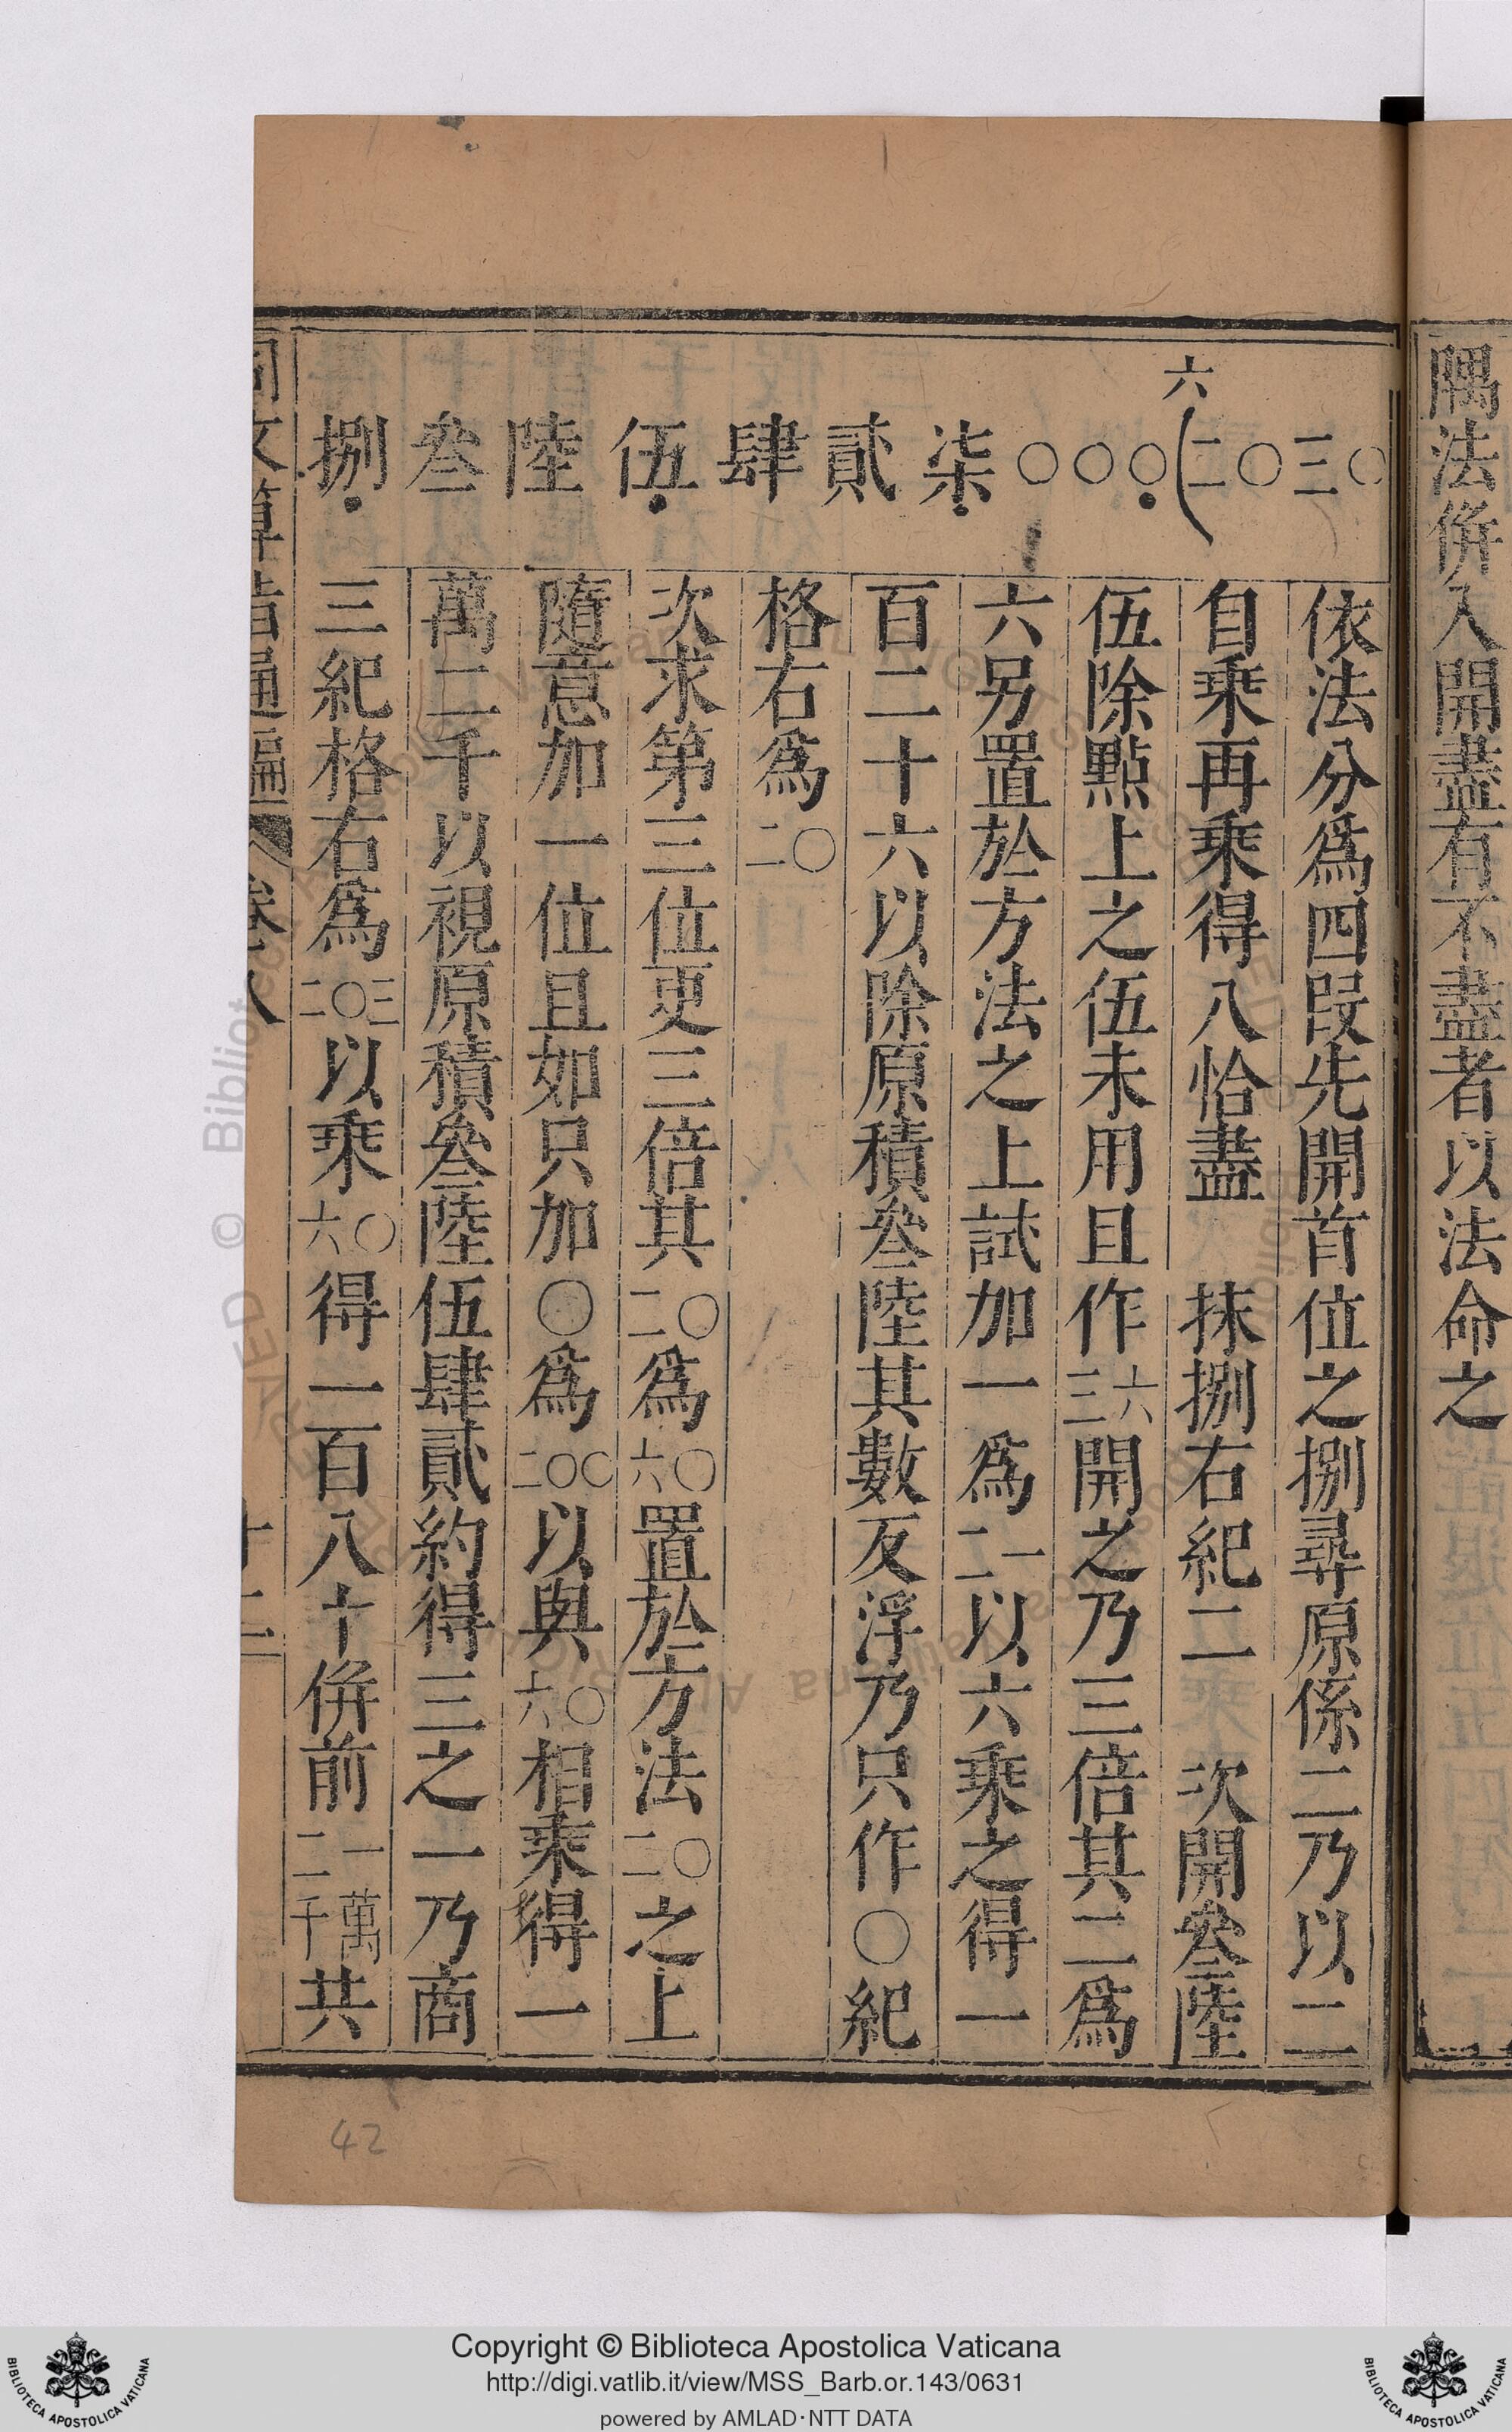 隅法併入開盡有不盡者以法命之
六
捌叁陸伍肆貳柒〇〇〇(二〇三〇
依法分爲四段先開首位之捌尋原係二乃以二
自乘再乘得八恰盡 抹捌右紀二 次開叁陸
伍除點上之伍未用且作三六開之乃三倍其二爲
六另置於方法之上試加一爲二一以六乘之得一
百二十六以除原積叁陸其數反浮乃只作〇紀
格右爲二〇
次求第三位更三倍其二〇爲六〇置於方法二〇之上
隨意加一位且如只加〇爲二〇〇以與六〇相乘得一
萬二千以視原積叁陸伍肆貳約得三之一乃商
三紀格右爲二〇三以乘六〇得一百八十併前一萬二千共
同文算指通編 卷八 十二
42
Copyright © Biblioteca Apostolica Vaticana
http://digi.vatlib.it/view/MSS_Barb.or.143/0631
powered by AMLAD·NTT DATA
BIBLIOTECA APOSTOLICA VATICANA
BIBLIOTECA APOSTOLICA VATICANA